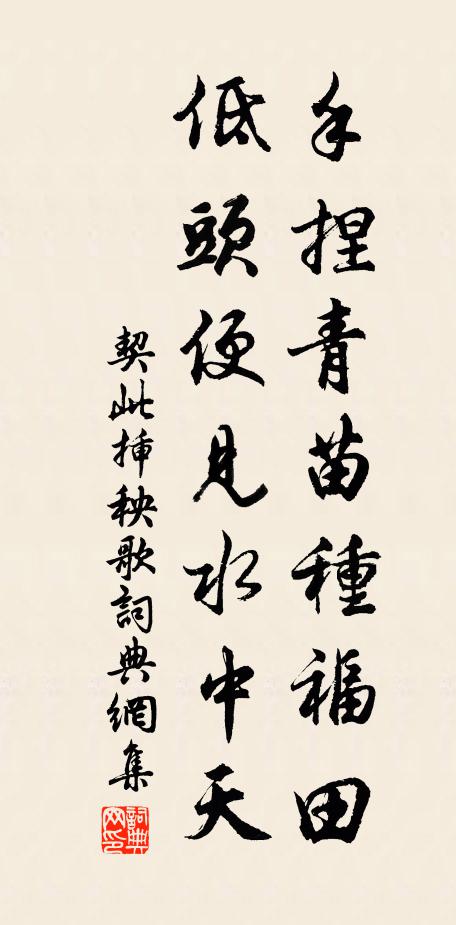 手捏青苗種福田
低頭便見水中天
契此挿秧歌詞典網集
詞典
网印